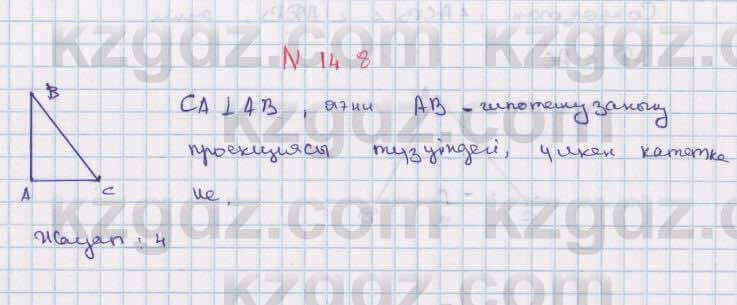 N 14 8
B
CA ⊥ AB, яғни AB - гипотенузаның
проекциясы түзуіндегі, үлкен катетке
ие.
A C
Жауап: 4
kzgdz.com kzgdz.com
kzgdz.com kzgdz.com
kzgdz.com kzgdz.com